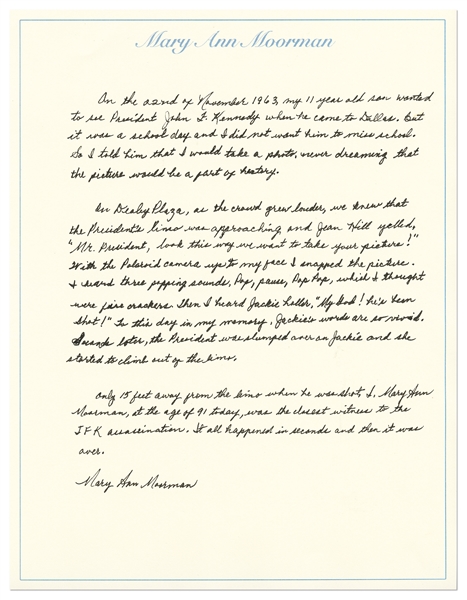 Mary Ann Moorman
On the 22nd of November 1963, my 11 year old son wanted
to see President John F. Kennedy when he came to Dallas. But
it was a school day and I did not want him to miss school.
So I told him that I would take a photo, never dreaming that
the picture would be a part of history.
In Dealey Plaza, as the crowd grew louder, we knew that
the President's limo was approaching and Jean Hill yelled,
"Mr. President, look this way we want to take your picture!"
With the Polaroid camera up to my face I snapped the picture.
I heard three popping sounds, Pop, pause, Pop Pop, which I thought
were fire crackers. Then I heard Jackie holler, "My God! he's been
shot!" To this day in my memory, Jackie's words are so vivid.
Seconds later, the President was slumped over on Jackie and she
started to climb out of the limo.
Only 15 feet away from the limo when he was shot, I, Mary Ann
Moorman, at the age of 91 today, was the closest witness to the
JFK assassination. It all happened in seconds and then it was
over.
Mary Ann Moorman